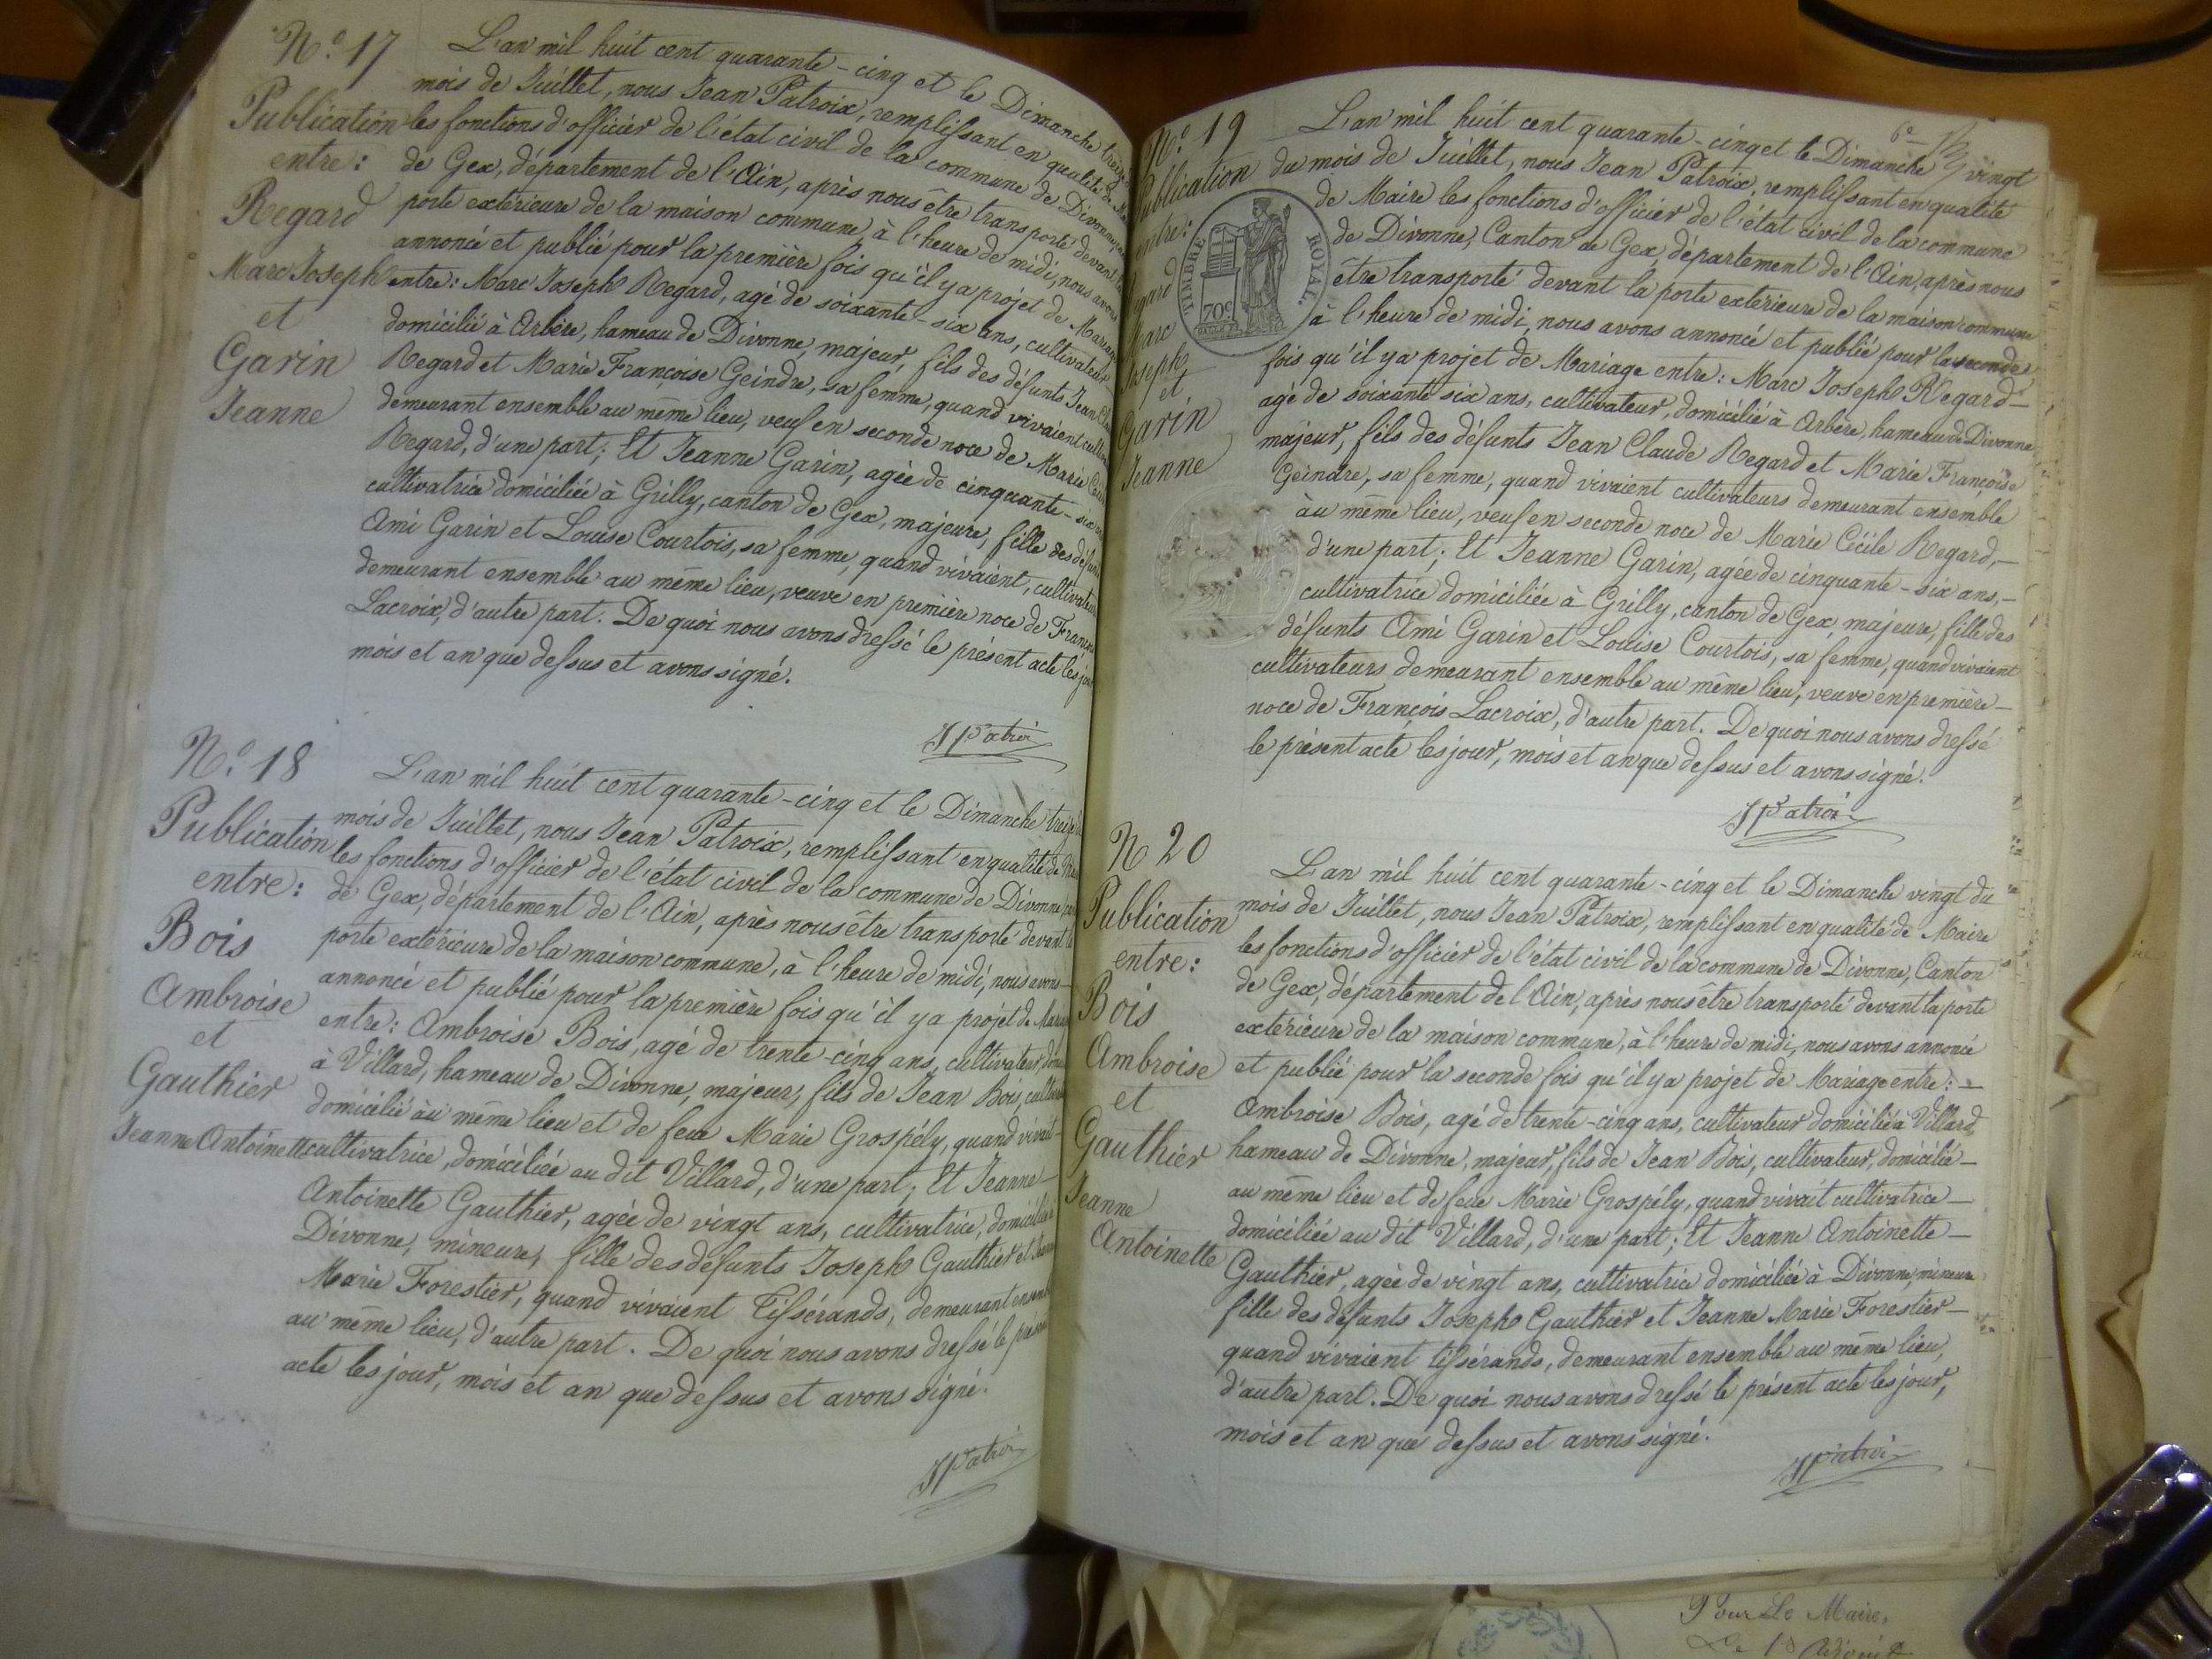 N.º 17
Publication
entre:
Regard
Marc Joseph
et
Garin
Jeanne
L'an mil huit cent quarante-cinq et le Dimanche treize
mois de Juillet, nous Jean Patroix, remplissant en qualité de
les fonctions d'officier de l'état civil de la commune de Divonne,
de Gex, département de l'Ain, après nous être transporté devant la
porte extérieure de la maison commune, à l'heure de midi, nous avons
annoncé et publié pour la première fois qu'il y a projet de Mariage
entre: Marc Joseph Regard, agé de soixante-six ans, cultivateur
domicilié à Arbère, hameau de Divonne, majeur, fils des défunts Jean
Regard et Marie Françoise Geindre, sa femme, quand vivaient
demeurant ensemble au même lieu, veuf en seconde noce de Marie
Regard, d'une part; Et Jeanne Garin, agée de cinquante-six
cultivatrice domiciliée à Grilly, canton de Gex, majeure, fille des
Ami Garin et Louise Courtois, sa femme, quand vivaient, cultivateurs
demeurant ensemble au même lieu, veuve en première noce de
Lacroix, d'autre part. De quoi nous avons dressé le présent acte les jour
mois et an que dessus et avons signé.
JPatroix
N.º 18
Publication
entre:
Bois
Ambroise
et
Gauthier
Jeanne Antoinette
L'an mil huit cent quarante-cinq et le Dimanche treize
mois de Juillet, nous Jean Patroix, remplissant en qualité de
les fonctions d'officier de l'état civil de la commune de Divonne,
de Gex, département de l'Ain, après nous être transporté devant la
porte extérieure de la maison commune, à l'heure de midi, nous avons
annoncé et publié pour la première fois qu'il y a projet de
entre: Ambroise Bois, agé de trente-cinq ans, cultivateur,
à Villard, hameau de Divonne, majeur, fils de Jean Bois,
domicilié au même lieu et de feue Marie Grospély, quand vivait
cultivatrice, domiciliée au dit Villard, d'une part; Et Jeanne
Antoinette Gauthier, agée de vingt ans, cultivatrice, domiciliée à
Divonne, mineure, fille des défunts Joseph Gauthier et
Marie Forestier, quand vivaient Tissérands, demeurant ensemble
au même lieu, d'autre part. De quoi nous avons dressé le présent
acte les jour, mois et an que dessus et avons signé.
JPatroix
6e
N.º 19
Publication
entre:
Regard
Marc
Joseph
et
Garin
Jeanne
TIMBRE ROYAL.
70c
L'an mil huit cent quarante-cinq et le Dimanche vingt
du mois de Juillet, nous Jean Patroix, remplissant en qualité
de Maire les fonctions d'officier de l'état civil de la commune
de Divonne, Canton de Gex, département de l'Ain, après nous
être transporté devant la porte extérieure de la maison commune
à l'heure de midi, nous avons annoncé et publié pour la seconde
fois qu'il y a projet de Mariage entre: Marc Joseph Regard
agé de soixante six ans, cultivateur, domicilié à Arbère, hameau de Divonne
majeur, fils des défunts Jean Claude Regard et Marie Françoise
Geindre, sa femme, quand vivaient cultivateurs demeurant ensemble
au même lieu, veuf en seconde noce de Marie Cécile Regard,
d'une part; Et Jeanne Garin, agée de cinquante-six ans,
cultivatrice domiciliée à Grilly, canton de Gex, majeure, fille des
défunts Ami Garin et Louise Courtois, sa femme, quand vivaient
cultivateurs demeurant ensemble au même lieu, veuve en première
noce de François Lacroix, d'autre part. De quoi nous avons dressé
le présent acte les jour, mois et an que dessus et avons signé.
JPatroix
N 20
Publication
entre:
Bois
Ambroise
et
Gauthier
Jeanne
Antoinette
L'an mil huit cent quarante-cinq et le Dimanche vingt du
mois de Juillet, nous Jean Patroix, remplissant en qualité de Maire
les fonctions d'officier de l'état civil de la commune de Divonne, Canton
de Gex, département de l'Ain, après nous être transporté devant la porte
extérieure de la maison commune, à l'heure de midi, nous avons annoncé
et publié pour la seconde fois qu'il y a projet de Mariage entre:
Ambroise Bois, agé de trente-cinq ans, cultivateur domicilié à Villard
hameau de Divonne, majeur, fils de Jean Bois, cultivateur, domicilié
au même lieu et de feue Marie Grospély, quand vivait cultivatrice
domiciliée au dit Villard, d'une part; Et Jeanne Antoinette
Gauthier, agée de vingt ans, cultivatrice domiciliée à Divonne, mineure
fille des défunts Joseph Gauthier et Jeanne Marie Forestier
quand vivaient tissérands, demeurant ensemble au même lieu,
d'autre part. De quoi nous avons dressé le présent acte les jour,
mois et an que dessus et avons signé.
JPatroix
Pour Le Maire,